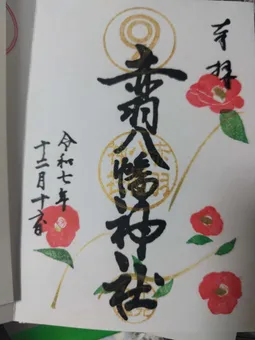 奉拝
赤羽八幡神社
令和七年
十二月十六日